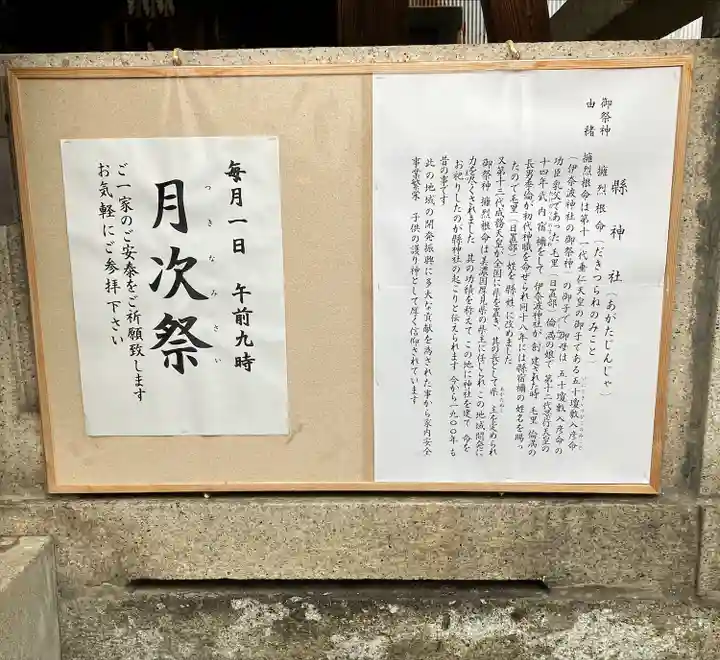 縣神社（あがたじんじゃ）
御祭神 擁烈根命（だきつらねのみこと）
由緒 擁烈根命は第十一代垂仁天皇の御子である五十瓊敷入彦命
（伊奈波神社の御祭神）の御子で 御母は 五十瓊敷入彦命の
功臣乳父であった 毛里（日置部）倫満の娘で 第十二代景行天皇の
十四年武内宿禰をして 伊奈波神社が創建された時 毛里倫満の
長男季倫が初代神職を命ぜられ同十八年には縣宿禰の姓名を賜っ
たので毛里（日置部）姓を縣姓に改めました
又第十三代成務天皇が全国に県を置き、其の長として県主を定められ
御祭神 擁烈根命は美濃国厚見県の県主に任じられ この地域開発に
力を尽くされました 其の功績を称えて この地に神社を建て 命を
お祀りしたのが縣神社の起こりと伝えられます 今から一九〇〇年も
昔の事です
此の地域の開発振興に多大な貢献を為された事から家内安全
事業繁栄 子供の護り神として厚く信仰されています
毎月一日 午前九時
月次祭
つきなみさい
ご一家のご安泰をご祈願致します
お気軽にご参拝下さい